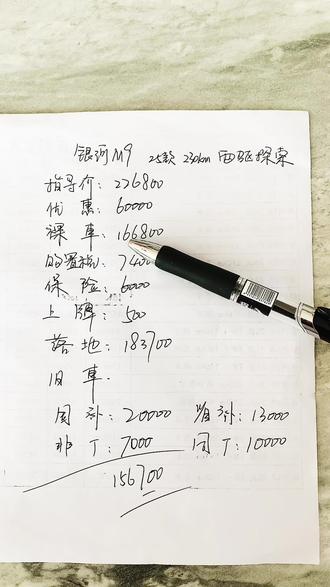 银河M9 25款 230km 四驱探索
指导价: 226800
优惠: 60000
裸车: 166800
购置税: 7400
保险: 6000
上牌: 500
落地: 183700
旧车.
国补: 20000 省补: 13000
非T: 7000 同T: 10000
156700